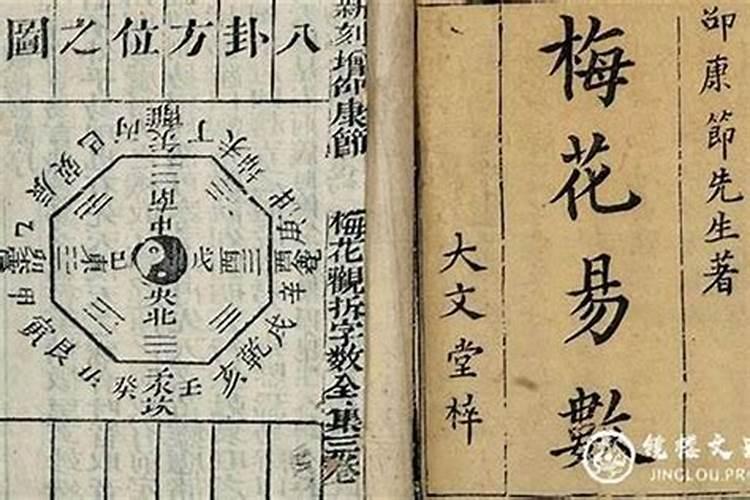 邵康節先生著
梅花易數
大文堂梓
新刻增邵康節
梅花觀拆字數全集三卷
八卦方位之圖
巳 巽 辰
丙
離
丁
未 坤 申
乙
甲
寅 艮 丑
癸
壬
亥 乾 戌
辛
酉 兌
庚
南
中
央
北
東
巳
戊
酉
子 坎
鏡樓文
JINGLOU.PR